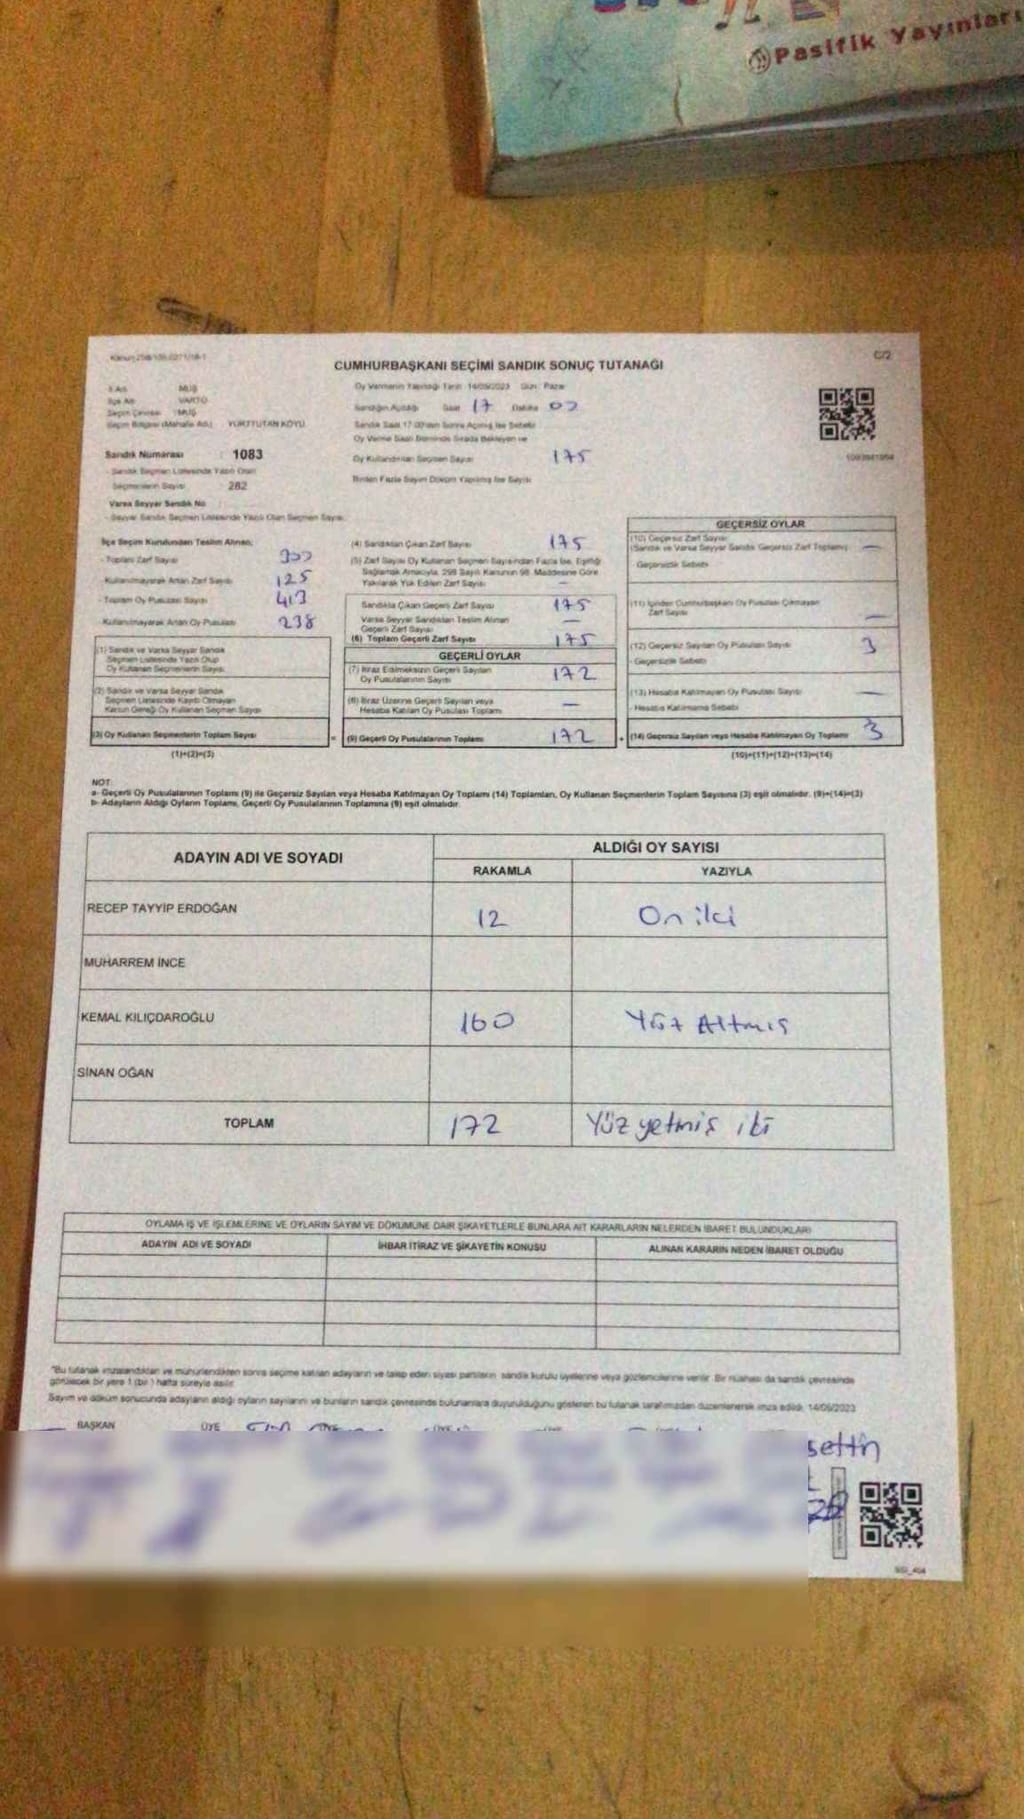 Pasifik Yayınları
C/2
CUMHURBAŞKANI SEÇİMİ SANDIK SONUÇ TUTANAĞI
İl Adı MUŞ
İlçe Adı VARTO
Seçim Çevresi MUŞ
Seçim Bölgesi (Mahalle Adı) YURTTUTAN KÖYÜ
Oy Vermenin Yapıldığı Tarih 14/05/2023 Gün: Pazar
Sandığın Açıldığı Saat 17 Dakika
Sandık Numarası : 1083
Sandık Seçmen Listesinde Yazılı Olan
Seçmenlerin Sayısı 282
Oy Kullandırılan Seçmen Sayısı 175
Birden Fazla Sayım Döküm Yapılmış İse Sayısı
Varsa Seyyar Sandık No
- Seyyar Sandık Seçmen Listesinde Yazılı Olan Seçmen Sayısı:
İlçe Seçim Kurulundan Teslim Alınan;
- Toplam Zarf Sayısı 300
Kullanılmayarak Artan Zarf Sayısı 125
- Toplam Oy Pusulası Sayısı 413
Kullanılmayarak Artan Oy Pusulası 238
(1) Sandık ve Varsa Seyyar Sandık
Seçmen Listesinde Yazılı Olup
Oy Kullanan Seçmenlerin Sayısı
(2) Sandık ve Varsa Seyyar Sandık
Seçmen Listesinde Kayıtlı Olmayan
Kanun Gereği Oy Kullanan Seçmen Sayısı
(3) Oy Kullanan Seçmenlerin Toplam Sayısı
(1)+(2)=(3)
(4) Sandıktan Çıkan Zarf Sayısı 175
(5) Zarf Sayısı Oy Kullanan Seçmen Sayısından Fazla İse, Eşitliği
Sağlamak Amacıyla, 298 Sayılı Kanunun 98. Maddesine Göre
Yakılarak Yok Edilen Zarf Sayısı –
Sandıkta Çıkan Geçerli Zarf Sayısı 175
Varsa Seyyar Sandıktan Teslim Alınan
Geçerli Zarf Sayısı –
(6) Toplam Geçerli Zarf Sayısı 175
GEÇERLİ OYLAR
(7) İtiraz Edilmeksizin Geçerli Sayılan
Oy Pusulalarının Sayısı 172
(8) İtiraz Üzerine Geçerli Sayılan veya
Hesaba Katılan Oy Pusulası Toplamı –
(9) Geçerli Oy Pusulalarının Toplamı 172
GEÇERSİZ OYLAR
(10) Geçersiz Zarf Sayısı
(Sandık ve Varsa Seyyar Sandık Geçersiz Zarf Toplamı) –
Geçersizlik Sebebi
(11) İçinden Cumhurbaşkanı Oy Pusulası Çıkmayan
Zarf Sayısı –
(12) Geçersiz Sayılan Oy Pusulası Sayısı 3
- Geçersizlik Sebebi
(13) Hesaba Katılmayan Oy Pusulası Sayısı –
- Hesaba Katılmama Sebebi
(14) Geçersiz Sayılan veya Hesaba Katılmayan Oy Toplamı 3
(10)+(11)+(12)+(13)=(14)
NOT:
a- Geçerli Oy Pusulalarının Toplamı (9) ile Geçersiz Sayılan veya Hesaba Katılmayan Oy Toplamı (14) Toplamları, Oy Kullanan Seçmenlerin Toplam Sayısına (3) eşit olmalıdır. (9)+(14)=(3)
b- Adayların Aldığı Oyların Toplamı, Geçerli Oy Pusulalarının Toplamına (9) eşit olmalıdır.
ADAYIN ADI VE SOYADI ALDIĞI OY SAYISI
RAKAMLA YAZIYLA
RECEP TAYYİP ERDOĞAN 12 On iki
MUHARREM İNCE
KEMAL KILIÇDAROĞLU 160 Yüz Altmış
SİNAN OĞAN
TOPLAM 172 Yüz yetmiş iki
OYLAMA İŞ VE İŞLEMLERİNE VE OYLARIN SAYIM VE DÖKÜMÜNE DAİR ŞİKAYETLERLE BUNLARA AİT KARARLARIN NELERDEN İBARET BULUNDUKLARI
ADAYIN ADI VE SOYADI İHBAR İTİRAZ VE ŞİKAYETİN KONUSU ALINAN KARARIN NEDEN İBARET OLDUĞU
"Bu tutanak imzalandıktan ve mühürlendikten sonra seçime katılan adayların ve talep eden siyasi partilerin sandık kurulu üyelerine veya gözlemcilerine verilir. Bir nüshası da sandık çevresinde
görülecek bir yere 1 (bir) hafta süreyle asılır.
Sayım ve döküm sonucunda adayların aldığı oyların sayılarını ve bunların sandık çevresinde bulunanlara duyurulduğunu gösteren bu tutanak tarafımızdan düzenlenerek imza edildi. 14/05/2023
BAŞKAN ÜYE
settin